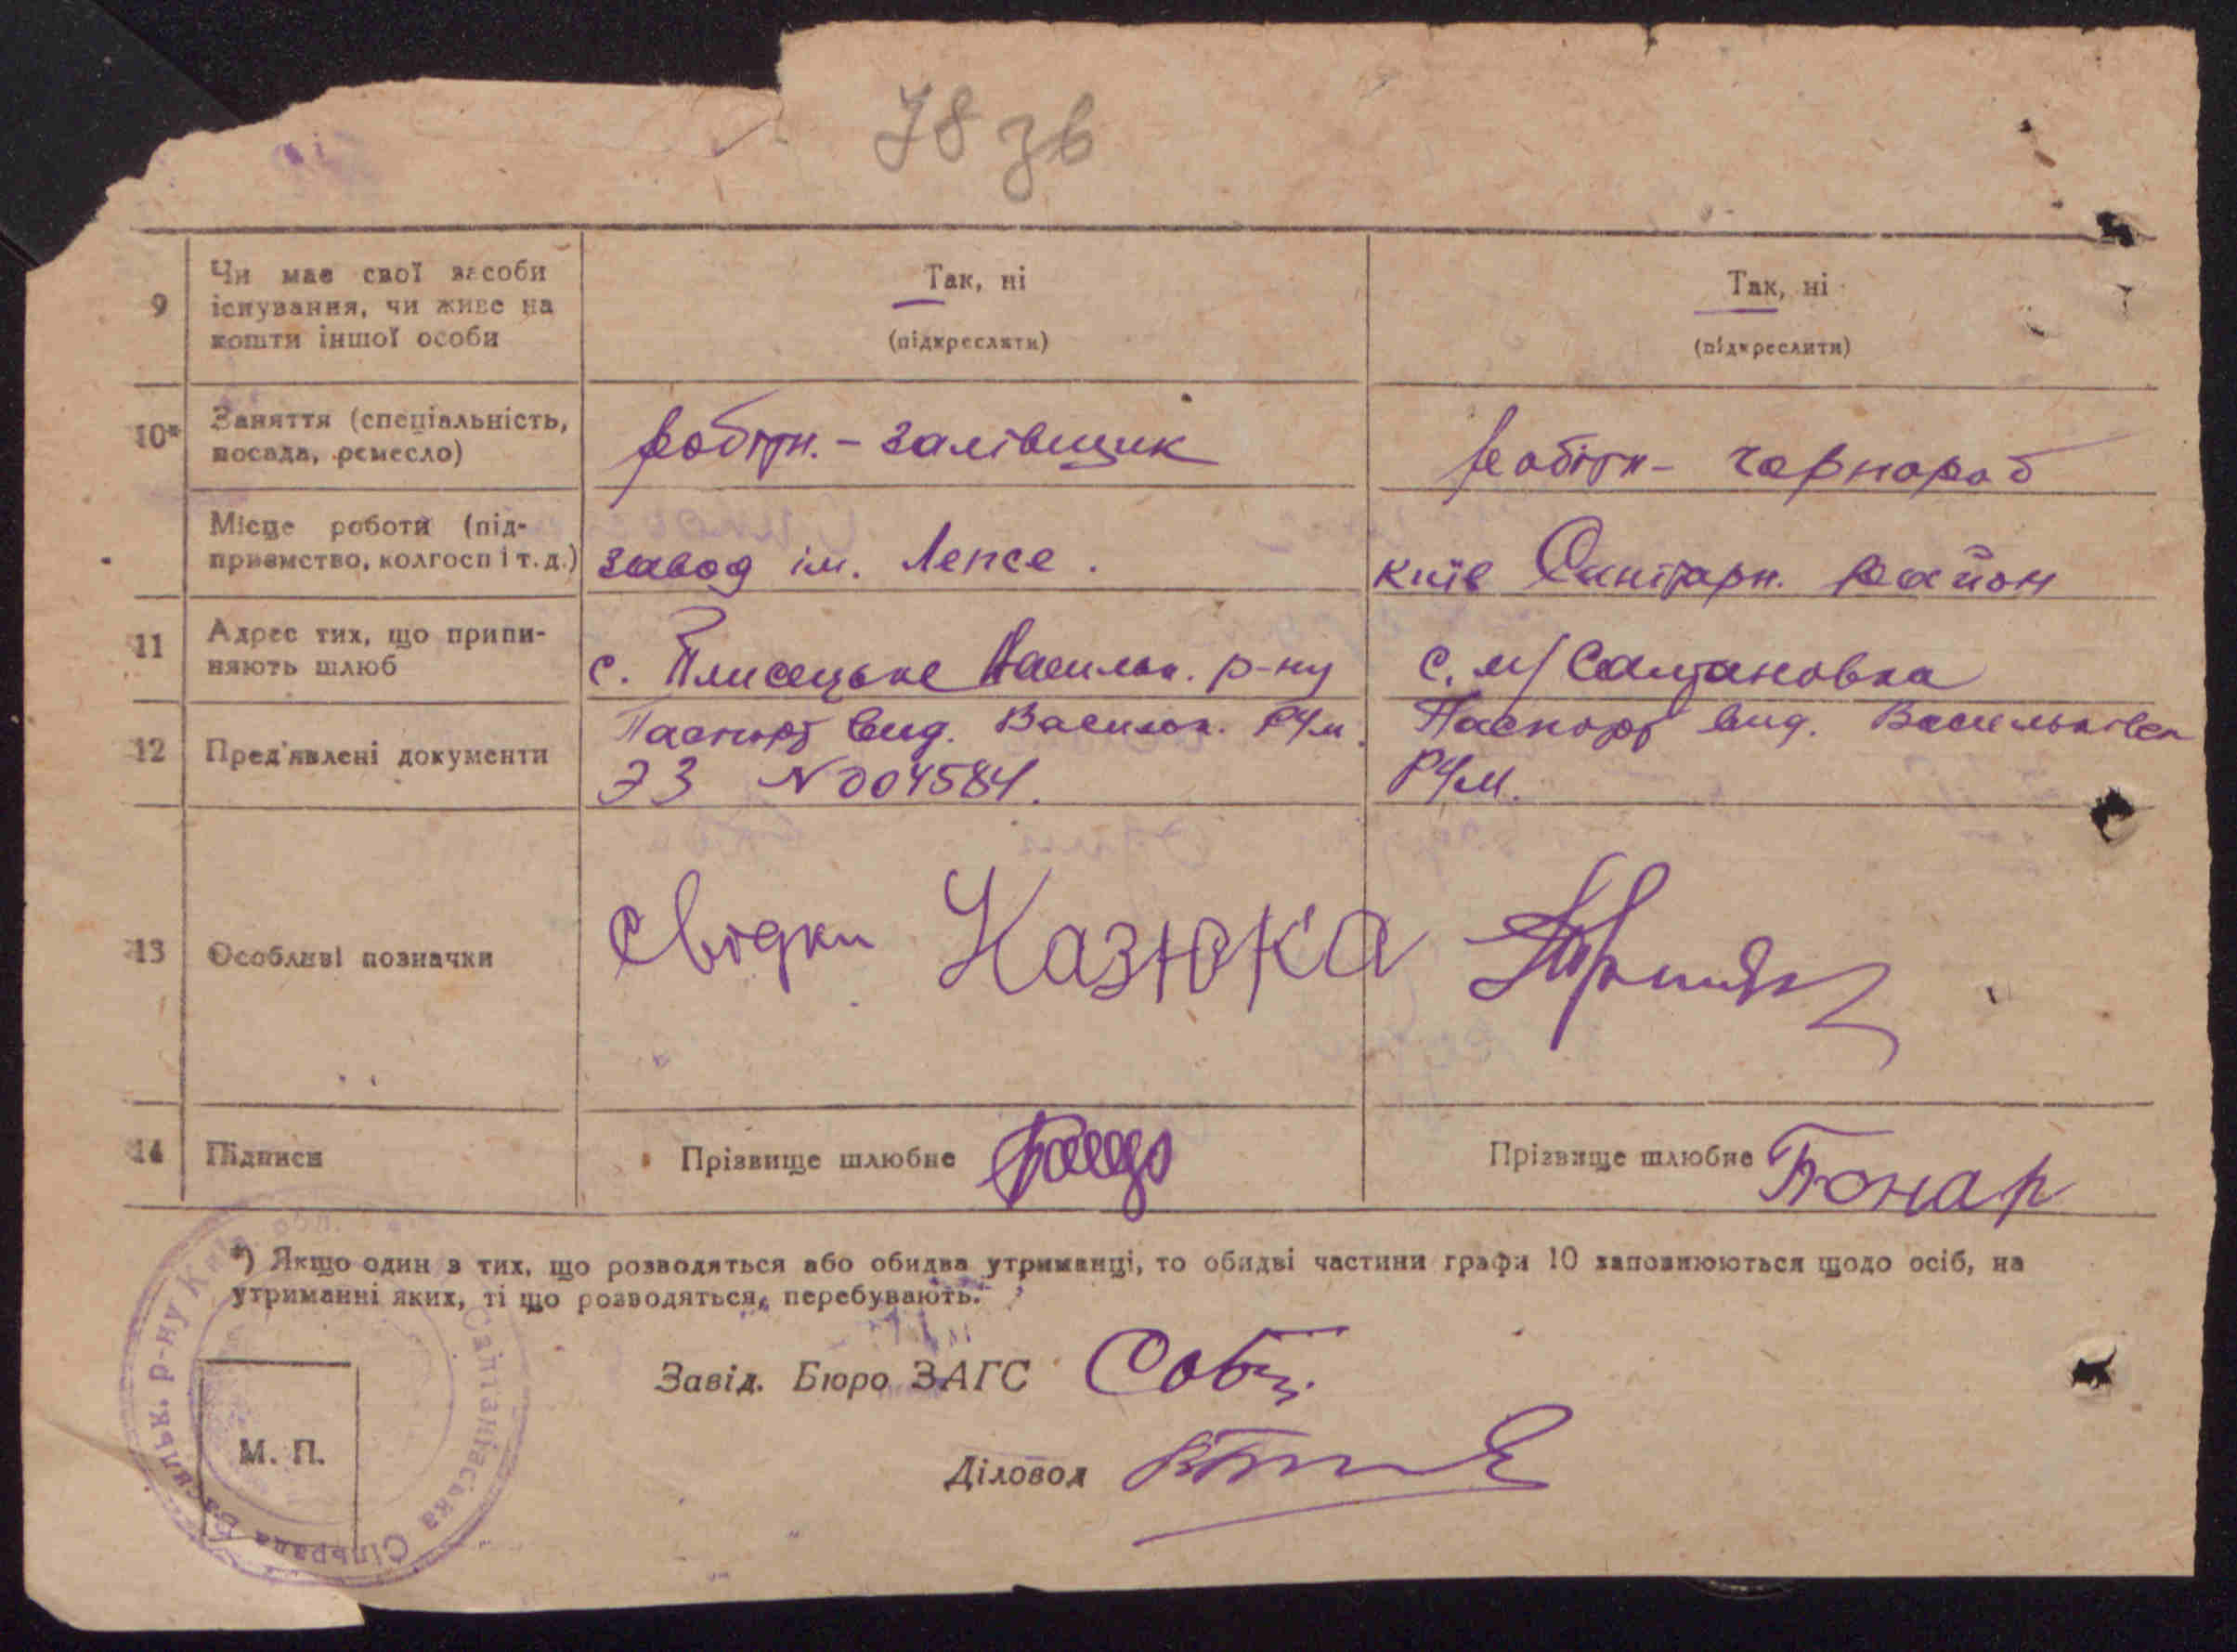 78 зв
9
Чи має свої засоби
існування, чи живе на
кошти іншої особи
Так, ні
(підкреслити)
Так, ні
(підкреслити)
10*
Заняття (спеціальність,
посада, ремесло)
робітн. - залівщик
робітн - чорнороб
Місце роботи (під-
приємство, колгосп і т. д.)
завод ім. Лепсе.
Київ Санітарн. район
11
Адрес тих, що припи-
няють шлюб
с. Плисецьке Васильк. р-ну
с. м/Салтановка
12
Пред'явлені документи
Паспорт вид. Васильк. РУм.
ЭЗ N 004584.
Паспорт вид. Васильківск
РУМ.
13
Особливі позначки
Свідки Казюка
14
Підписи
Прізвище шлюбне
Прізвище шлюбне Бонар
*) Якщо один з тих, що розводяться або обидва утриманці, то обидві частини графи 10 заповнюються щодо осіб, на
утриманні яких, ті що розводяться, перебувають.
Завід. Бюро ЗАГС
Діловод
М. П.
Салтанівська Сільрада Васильк. р-ну Київ. обл.